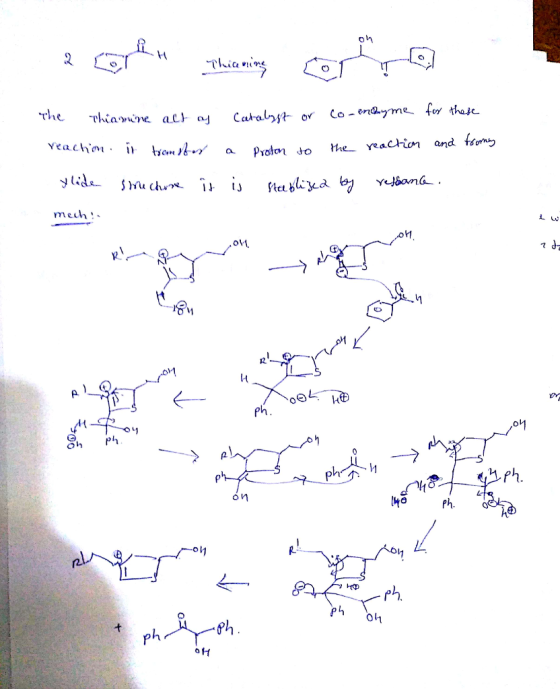 2 H Thiamine OH
The Thiamine act as Catalyst or Co-enzyme for these
reaction. it transfer a Proton to the reaction and froms
ylide structure it is stablized by
mech:-
R' N S OH H OH
R' N S OH H
R' N S OH H Ph. O H
R' N S OH H OH Ph OH
R' S OH Ph OH Ph H
R' N S OH HO H Ph. Ph. O H
R' N S OH O Ph Ph. OH
R' N S OH
+ Ph O Ph. OH